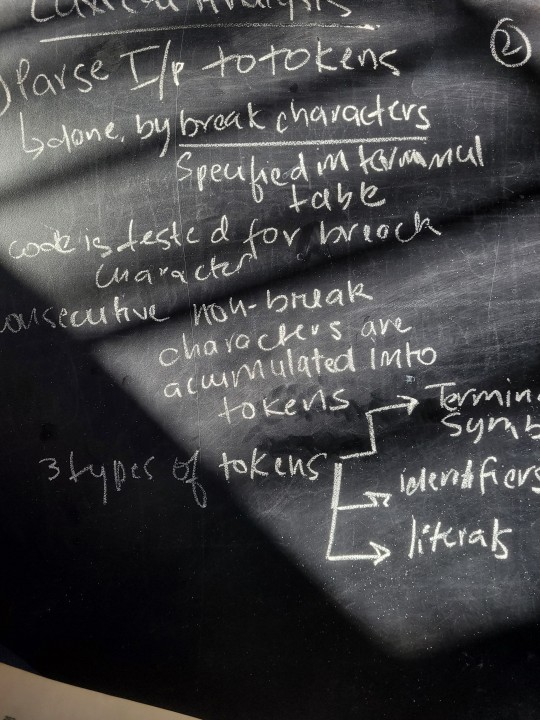 Lexical Analysis
②
) Parse I/p to tokens
↳ done by break characters
Specified in terminal
table
code is tested for break
character
onsecutive non-break
characters are
accumulated into
tokens
Termin
Symb
3 types of tokens
identifiers
literals